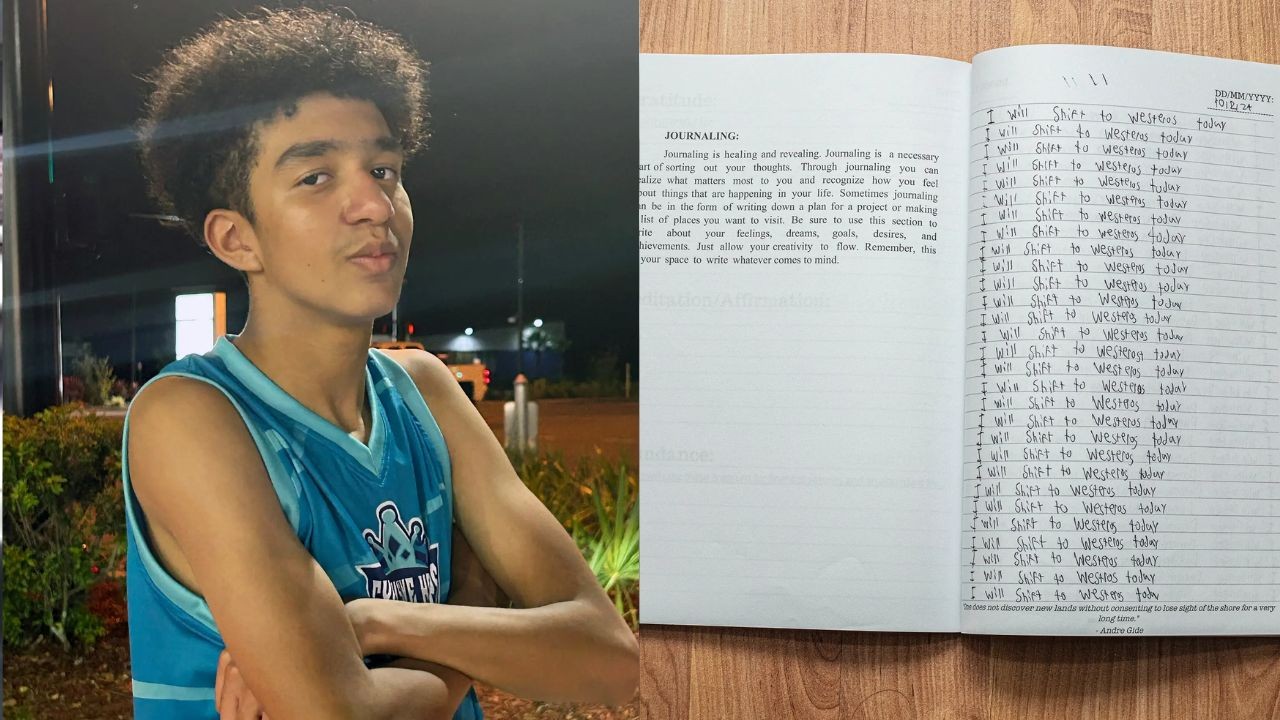 ratitude:
JOURNALING:
Journaling is healing and revealing. Journaling is a necessary
art of sorting out your thoughts. Through journaling you can
ealize what matters most to you and recognize how you feel
bout things that are happening in your life. Sometimes journaling
n be in the form of writing down a plan for a project or making
list of places you want to visit. Be sure to use this section to
rite about your feelings, dreams, goals, desires, and
hievements. Just allow your creativity to flow. Remember, this
your space to write whatever comes to mind.
editation/Affirmation:
ndance:
11 11
DD/MM/YYYY:
I will Shift to Westeros today
I will Shift to Westeros today
I will Shift to Westeros today
I will Shift to Westeros today
I will Shift to Westeros today
I will Shift to Westeros today
I will Shift to Westeros today
I will Shift to Westeros today
I will Shift to Westeros today
I will Shift to Westeros today
I will Shift to Westeros today
I will Shift to Westeros today
I will Shift to Westeros today
I will Shift to Westeros today
I will Shift to Westeros today
I will Shift to Westeros today
I will Shift to Westeros today
I will Shift to Westeros today
I will Shift to Westeros today
I will Shift to Westeros today
I will Shift to Westeros today
I will Shift to Westeros today
I will Shift to Westeros today
I will Shift to Westeros today
I will Shift to Westeros today
I will Shift to Westeros today
I will Shift to Westeros today
I will Shift to Westeros today
I will Shift to Westeros today
"One does not discover new lands without consenting to lose sight of the shore for a very
long time."
- Andre Gide